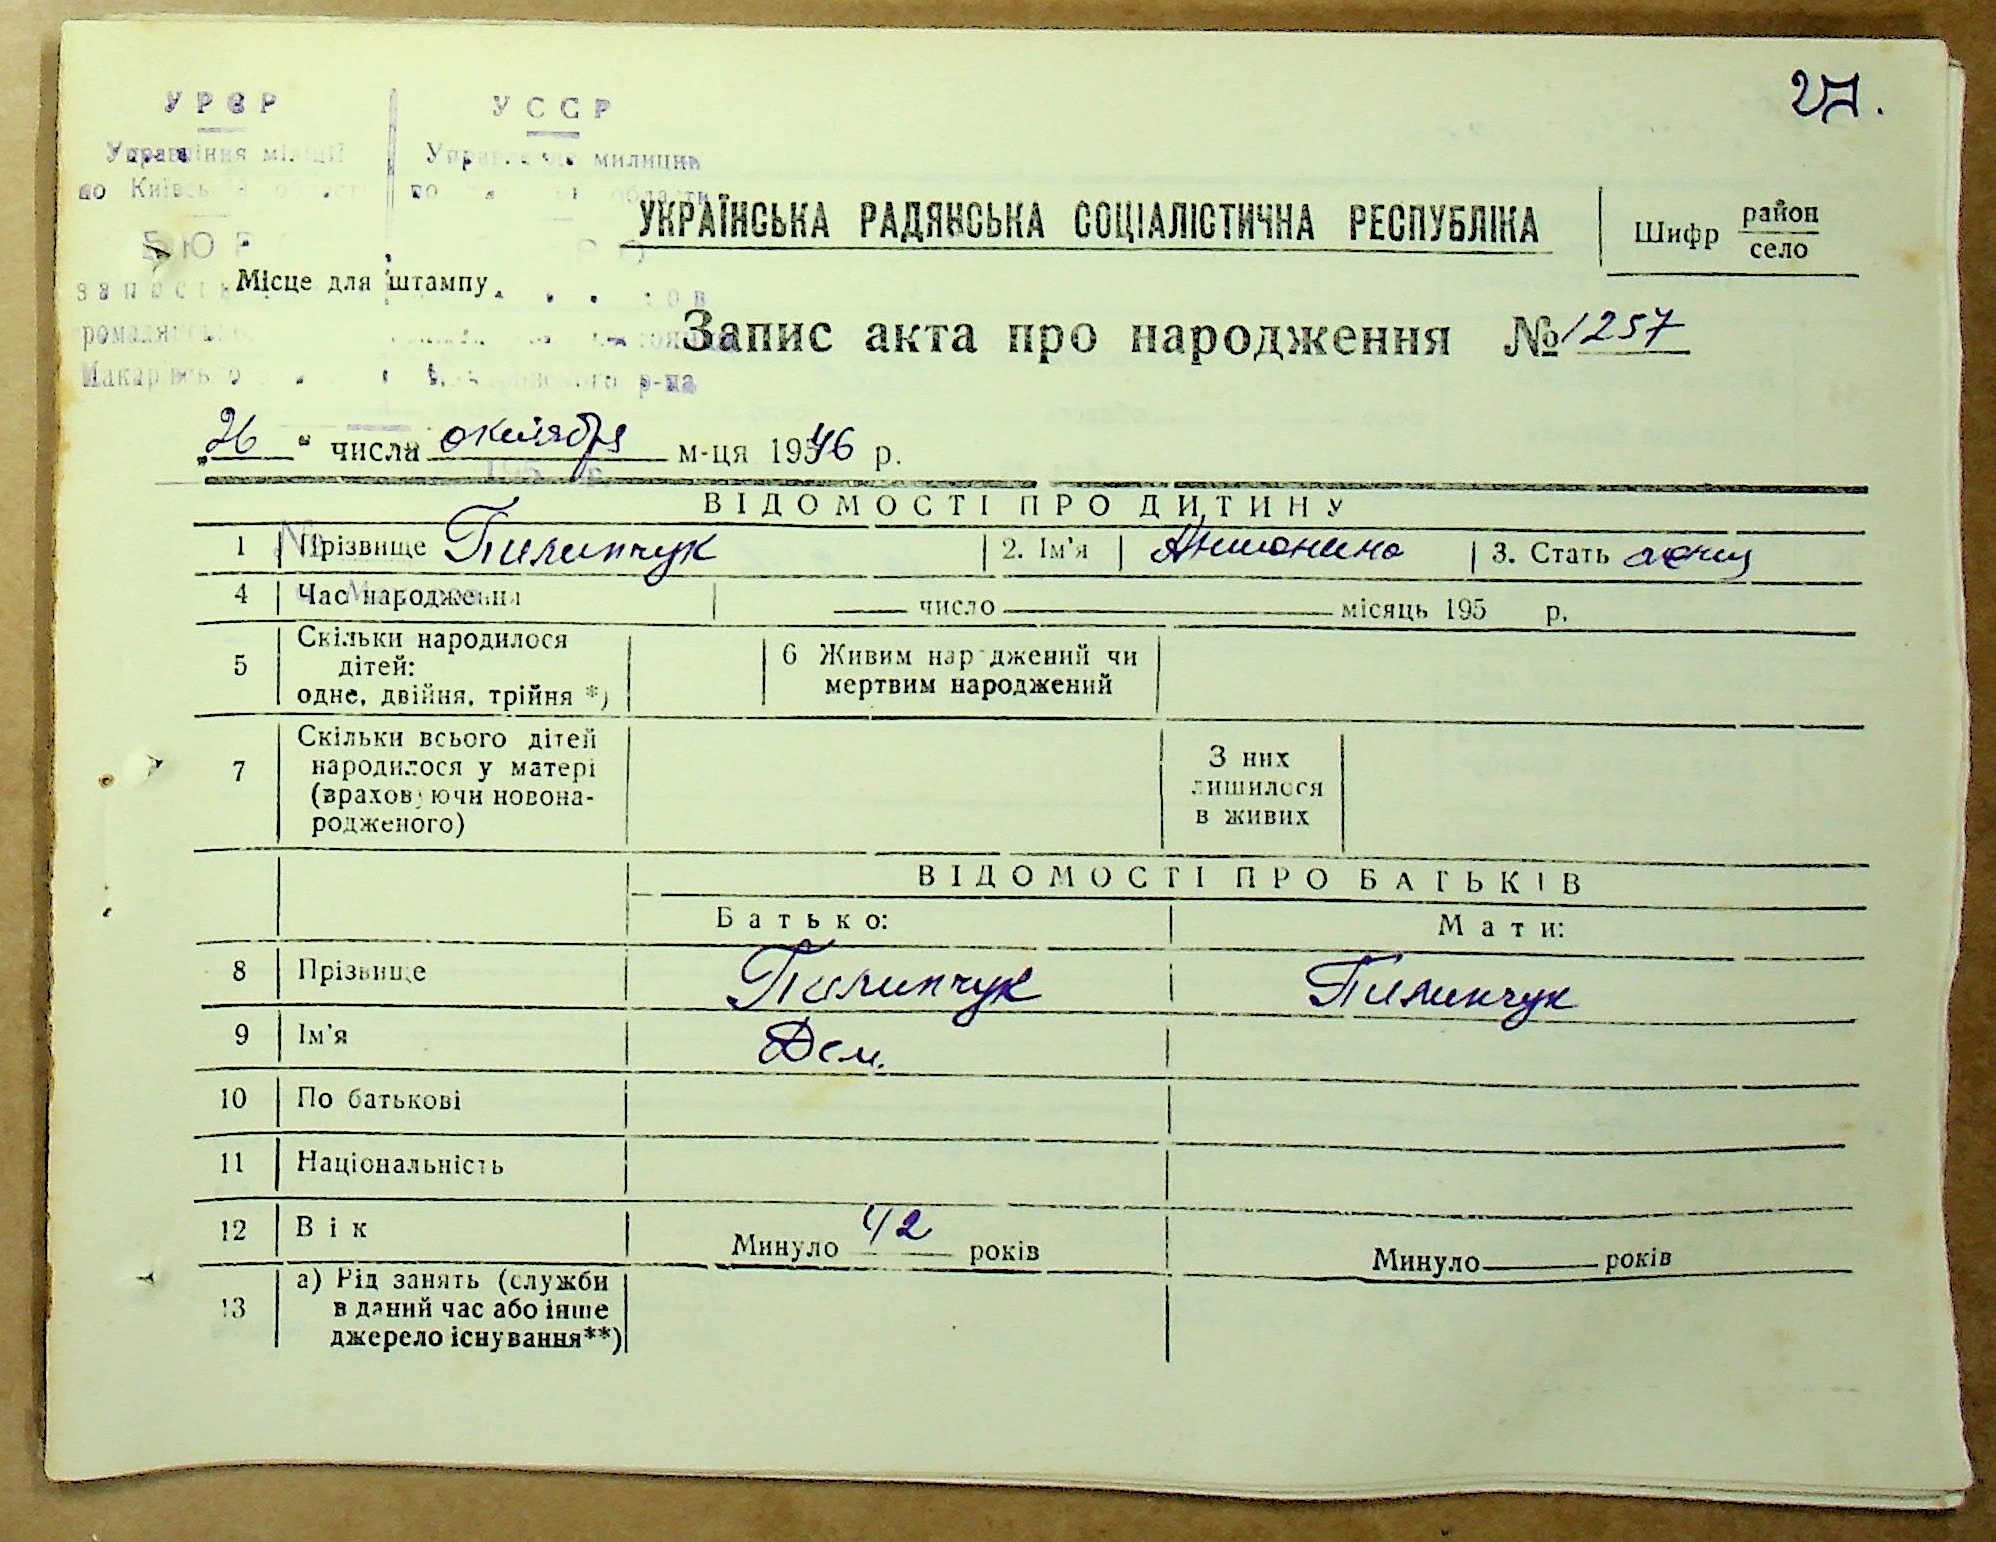 УРСР
УССР
Управління міліції
милиции
по Київській області
области
УКРАЇНСЬКА РАДЯНСЬКА СОЦІАЛІСТИЧНА РЕСПУБЛІКА
Шифр район
село
Місце для штампу
Запис акта про народження № 1257
р-на
„26" числа октября м-ця 1946 р.
ВІДОМОСТІ ПРО ДИТИНУ
1 Прізвище Пилипчук 2. Ім'я Антонина 3. Стать
4 Час народження число місяць 195 р.
5 Скільки народилося дітей: одне, двійня, трійня *)
6 Живим народжений чи мертвим народжений
7 Скільки всього дітей народилося у матері (враховуючи новонародженого)
З них лишилося в живих
ВІДОМОСТІ ПРО БАТЬКІВ
Батько: Мати:
8 Прізвище Пилипчук Пилипчук
9 Ім'я Дем.
10 По батькові
11 Національність
12 Вік Минуло 42 років Минуло років
13 а) Рід занять (служби в даний час або інше джерело існування**)